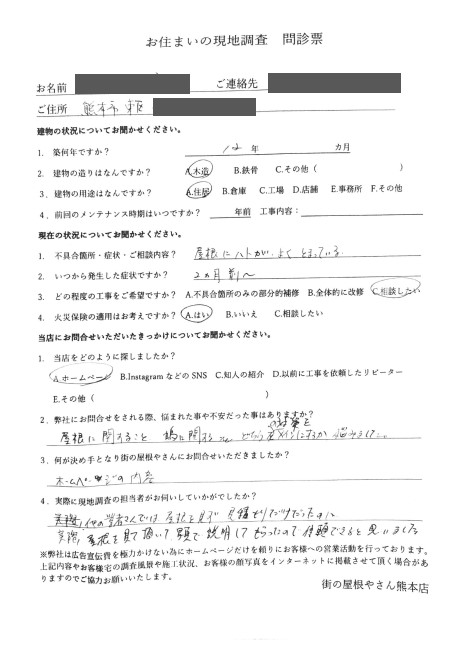 お住まいの現地調査 問診票
お名前 ご連絡先
ご住所 熊本市東
建物の状況についてお聞かせください。
1. 築何年ですか? 12 年 カ月
2. 建物の造りはなんですか? A.木造 B.鉄骨 C.その他( )
3. 建物の用途はなんですか? A.住居 B.倉庫 C.工場 D.店舗 E.事務所 F.その他
4. 前回のメンテナンス時期はいつですか? 年前 工事内容:
現在の状況についてお聞かせください。
1. 不具合箇所・症状・ご相談内容? 屋根にハトがよくとまっている
2. いつから発生した症状ですか? 2ヵ月前〜
3. どの程度の工事をご希望ですか? A.不具合箇所のみの部分的補修 B.全体的に改修 C.相談したい
4. 火災保険の適用はお考えですか? A.はい B.いいえ C.相談したい
当店にお問合せいただいたきっかけについてお聞かせください。
1. 当店をどのように探しましたか?
A.ホームページ B.Instagram などの SNS C.知人の紹介 D.以前に工事を依頼したリピーター
E.その他( )
2. 弊社にお問合せをされる際、悩まれた事や不安だった事はありますか?
屋根に関すること 鳩に関すること どちらをメインにするか 悩みました。
3. 何が決め手となり街の屋根やさんにお問合せいただきましたか?
ホームページの内容
4. 実際に現地調査の担当者がお伺いしていかがでしたか?
他の業者さんでは 屋根を見ず 見積もりだけだったのに
実際、屋根を見て頂いて 写真で 説明してもらったので 信頼できると思いました
※弊社は広告宣伝費を極力かけない為にホームページだけを頼りにお客様への営業活動を行っております。
上記内容やお客様宅の調査風景や施工状況、お客様の顔写真をインターネットに掲載させて頂く場合があ
りますのでご協力お願いいたします。
街の屋根やさん熊本店